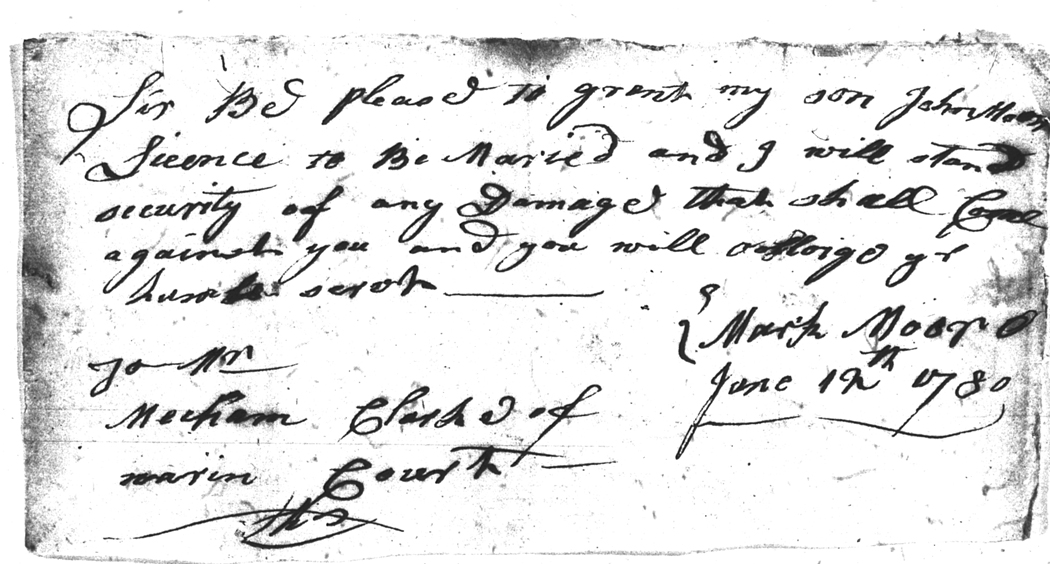 Sir Be pleasd to grent my son John Moor
Licence to Be Maried and I will stand
security of any Damage that shall Come
against you and you will obloige yr
humble servt
Mark Moore
June 12th 1780
To Mr
Mecham Clarke of
marin Court